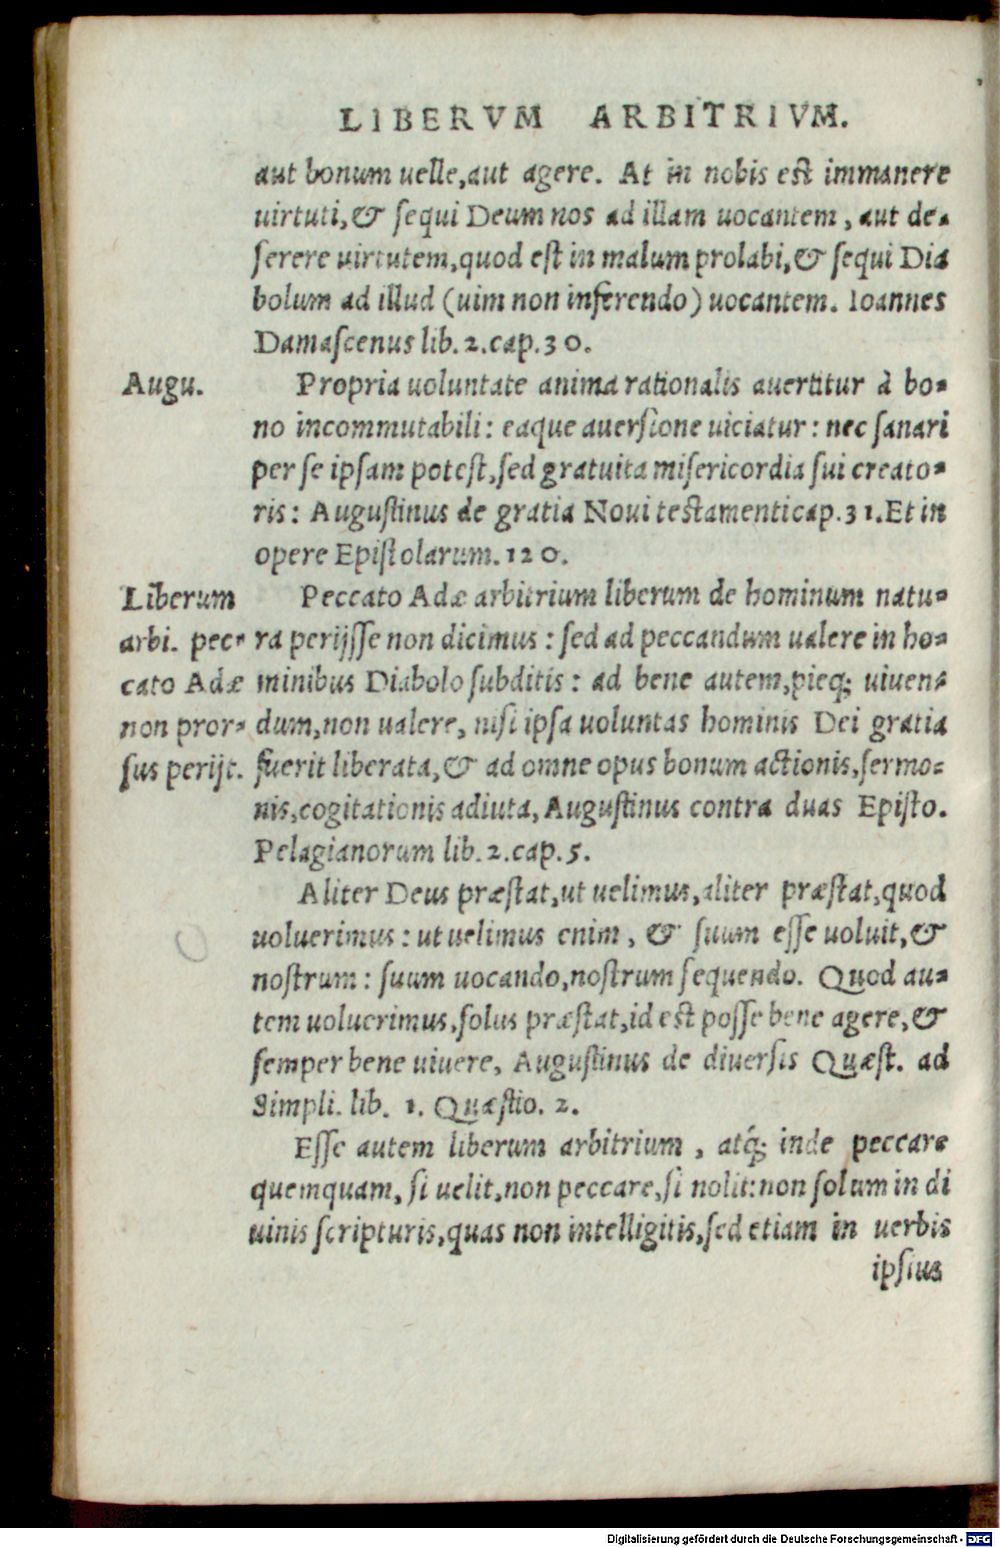 LIBERVM ARBITRIVM.
aut bonum uelle, aut agere. At in nobis est immanere
uirtuti, & sequi Deum nos ad illam uocantem, aut de-
serere uirtutem, quod est in malum prolabi, & sequi Dia
bolum ad illud (uim non inferendo) uocantem. Ioannes
Damascenus lib. 2. cap. 30.
Augu.
Propria uoluntate anima rationalis auertitur à bo-
no incommutabili: eaque auersione uiciatur: nec sanari
per se ipsam potest, sed gratuita misericordia sui creato-
ris: Augustinus de gratia Noui testamenti cap. 31. Et in
opere Epistolarum. 120.
Liberum
arbi. pec-
cato Adæ
non pror-
sus perijt.
Peccato Adæ arbitrium liberum de hominum natu-
ra perijsse non dicimus: sed ad peccandum ualere in ho-
minibus Diabolo subditis: ad bene autem, pieq; uiuen-
dum, non ualere, nisi ipsa uoluntas hominis Dei gratia
fuerit liberata, & ad omne opus bonum actionis, sermo-
nis, cogitationis adiuta, Augustinus contra duas Episto.
Pelagianorum lib. 2. cap. 5.
Aliter Deus præstat, ut uelimus, aliter præstat, quod
uoluerimus: ut uelimus enim, & suum esse uoluit, &
nostrum: suum uocando, nostrum sequendo. Quod au-
tem uoluerimus, solus præstat, id est posse bene agere, &
semper bene uiuere, Augustinus de diuersis Quæst. ad
Simpli. lib. 1. Quæstio. 2.
Esse autem liberum arbitrium, atq́; inde peccare
quemquam, si uelit, non peccare, si nolit: non solum in di
uinis scripturis, quas non intelligitis, sed etiam in uerbis
ipsius
Digitalisierung gefördert durch die Deutsche Forschungsgemeinschaft - DFG